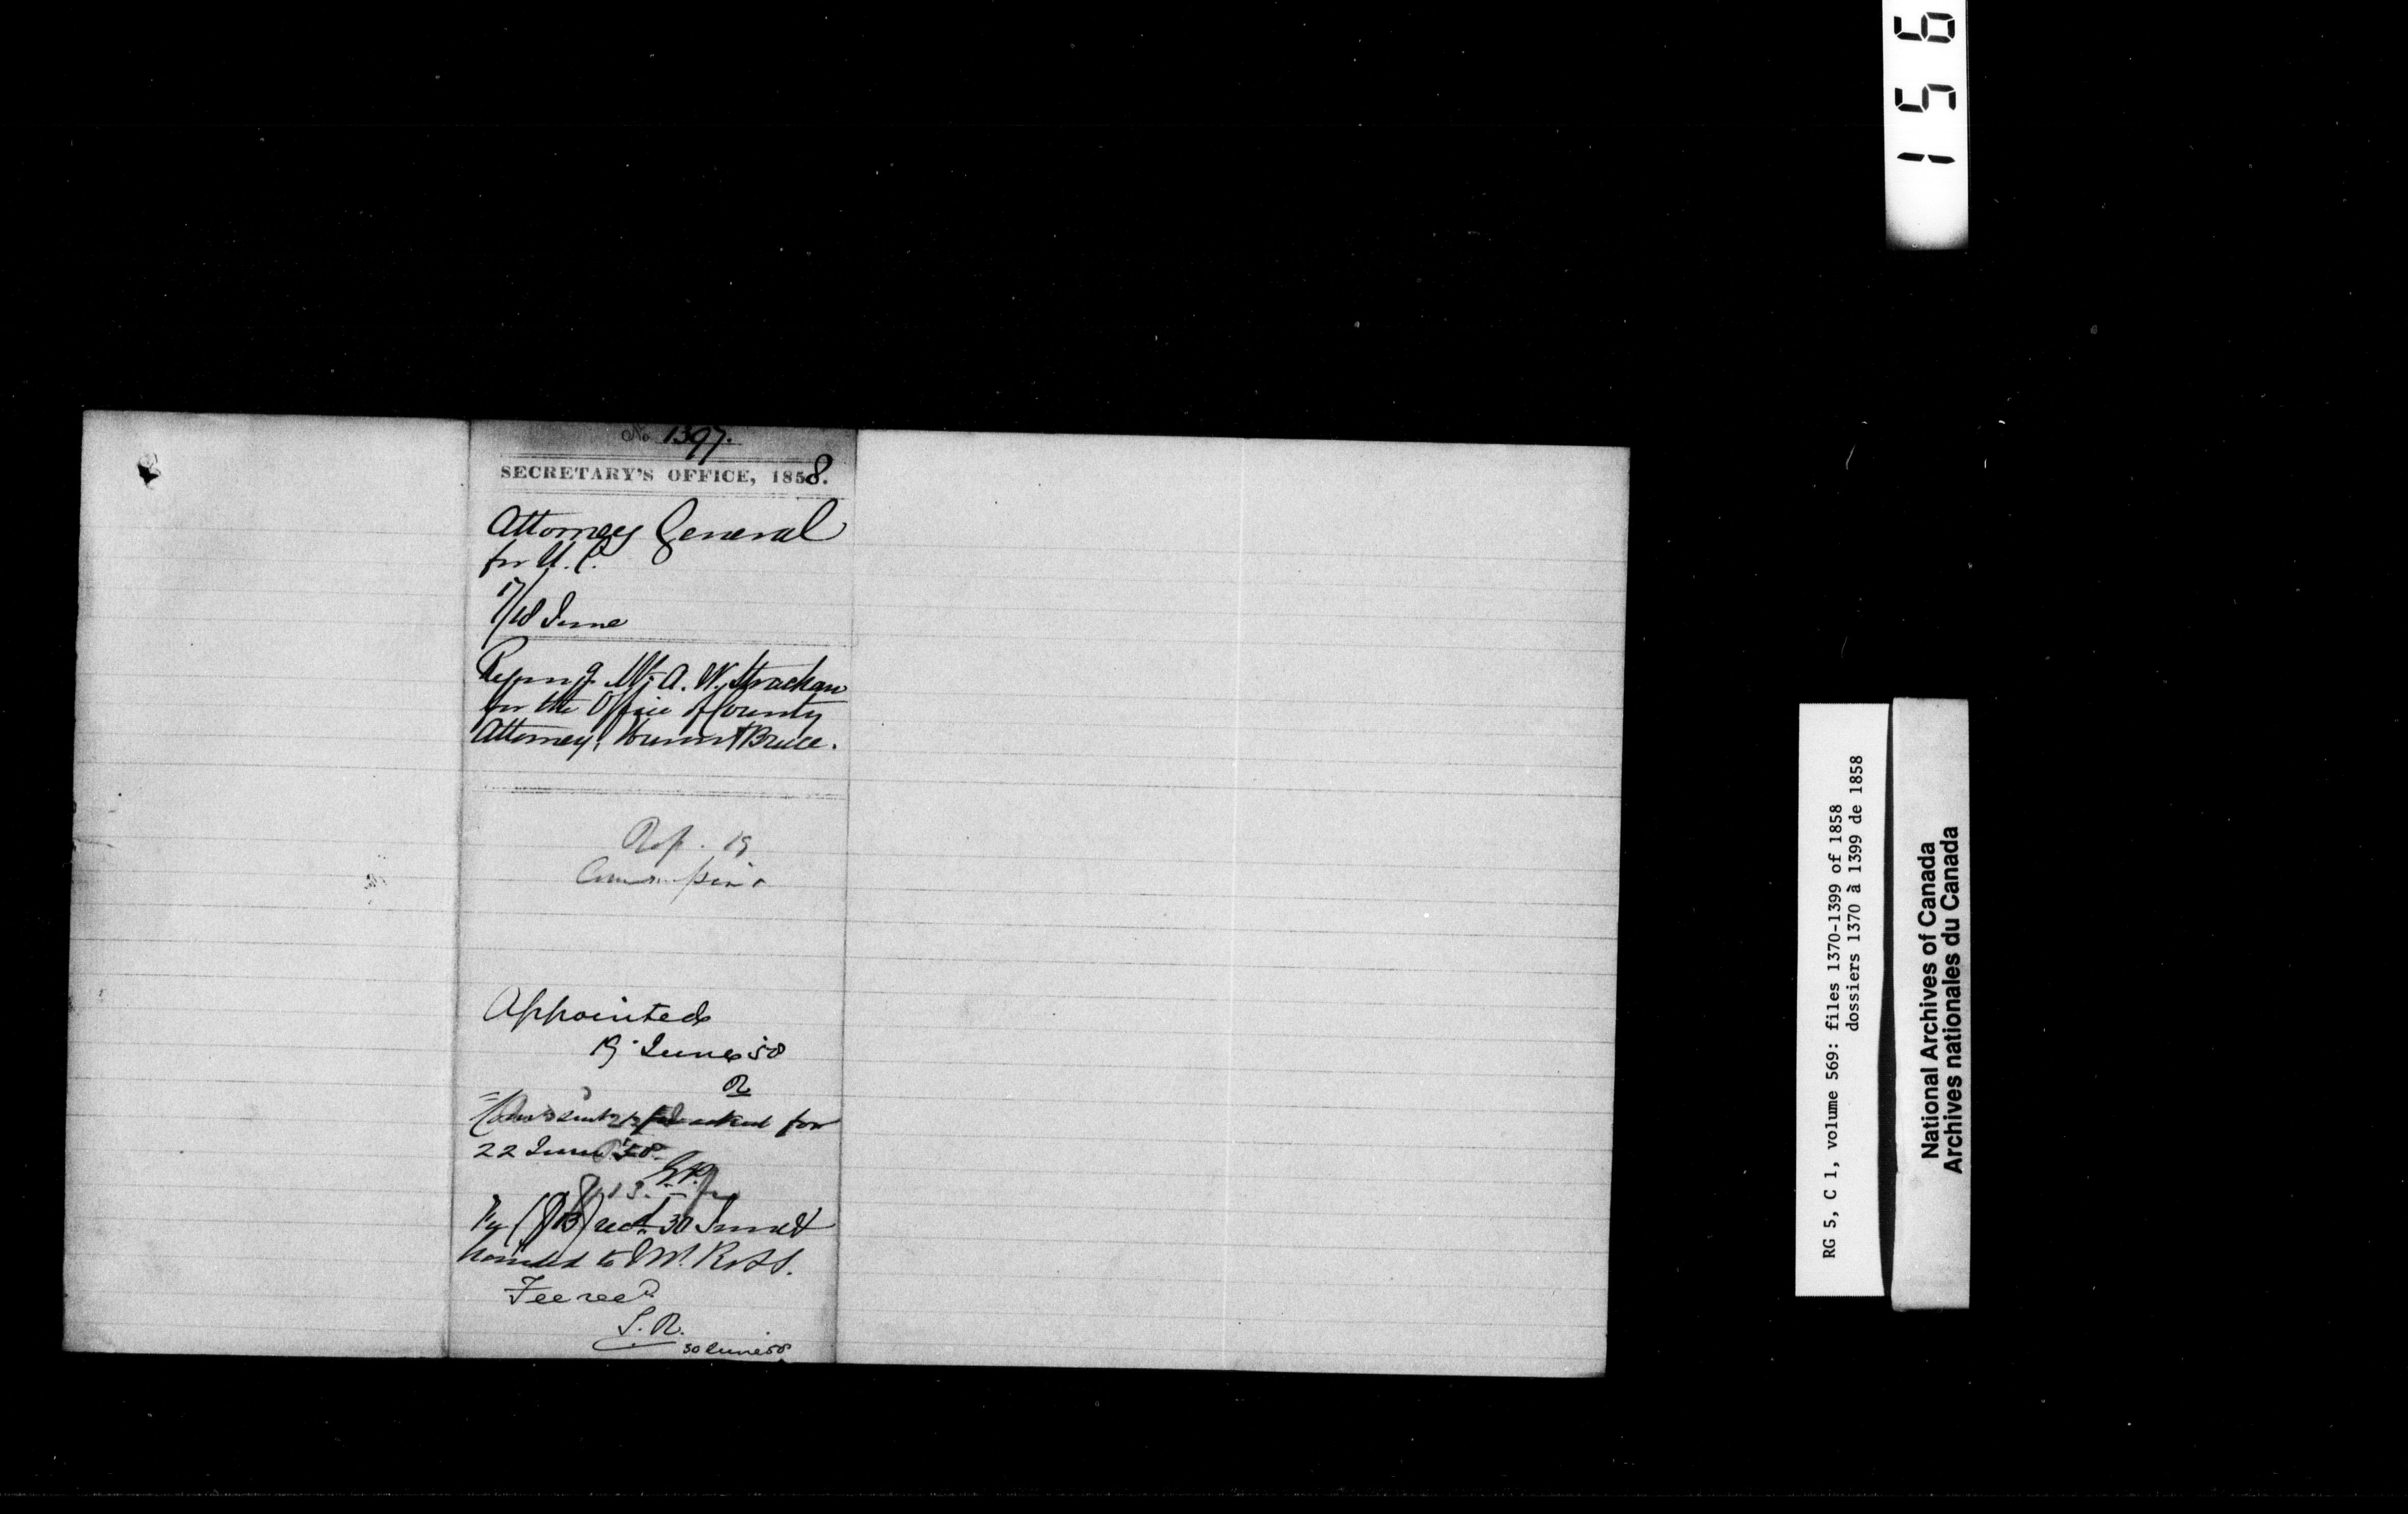 No 1397.
SECRETARY'S OFFICE, 1858.
Attorney General
for U. C.
17/18 June
Mr A. W. Strachan
for the Office of County
Attorney, Huron & Bruce.
Rep. 19
Appointed
19 June 58
R
asked for
22 June 58.
13.
recd 30 June &
handed to Mr. Ross.
Fee recd
S. R.
30 June 58
156
RG 5, C 1, volume 569: files 1370-1399 of 1858
dossiers 1370 à 1399 de 1858
National Archives of Canada
Archives nationales du Canada